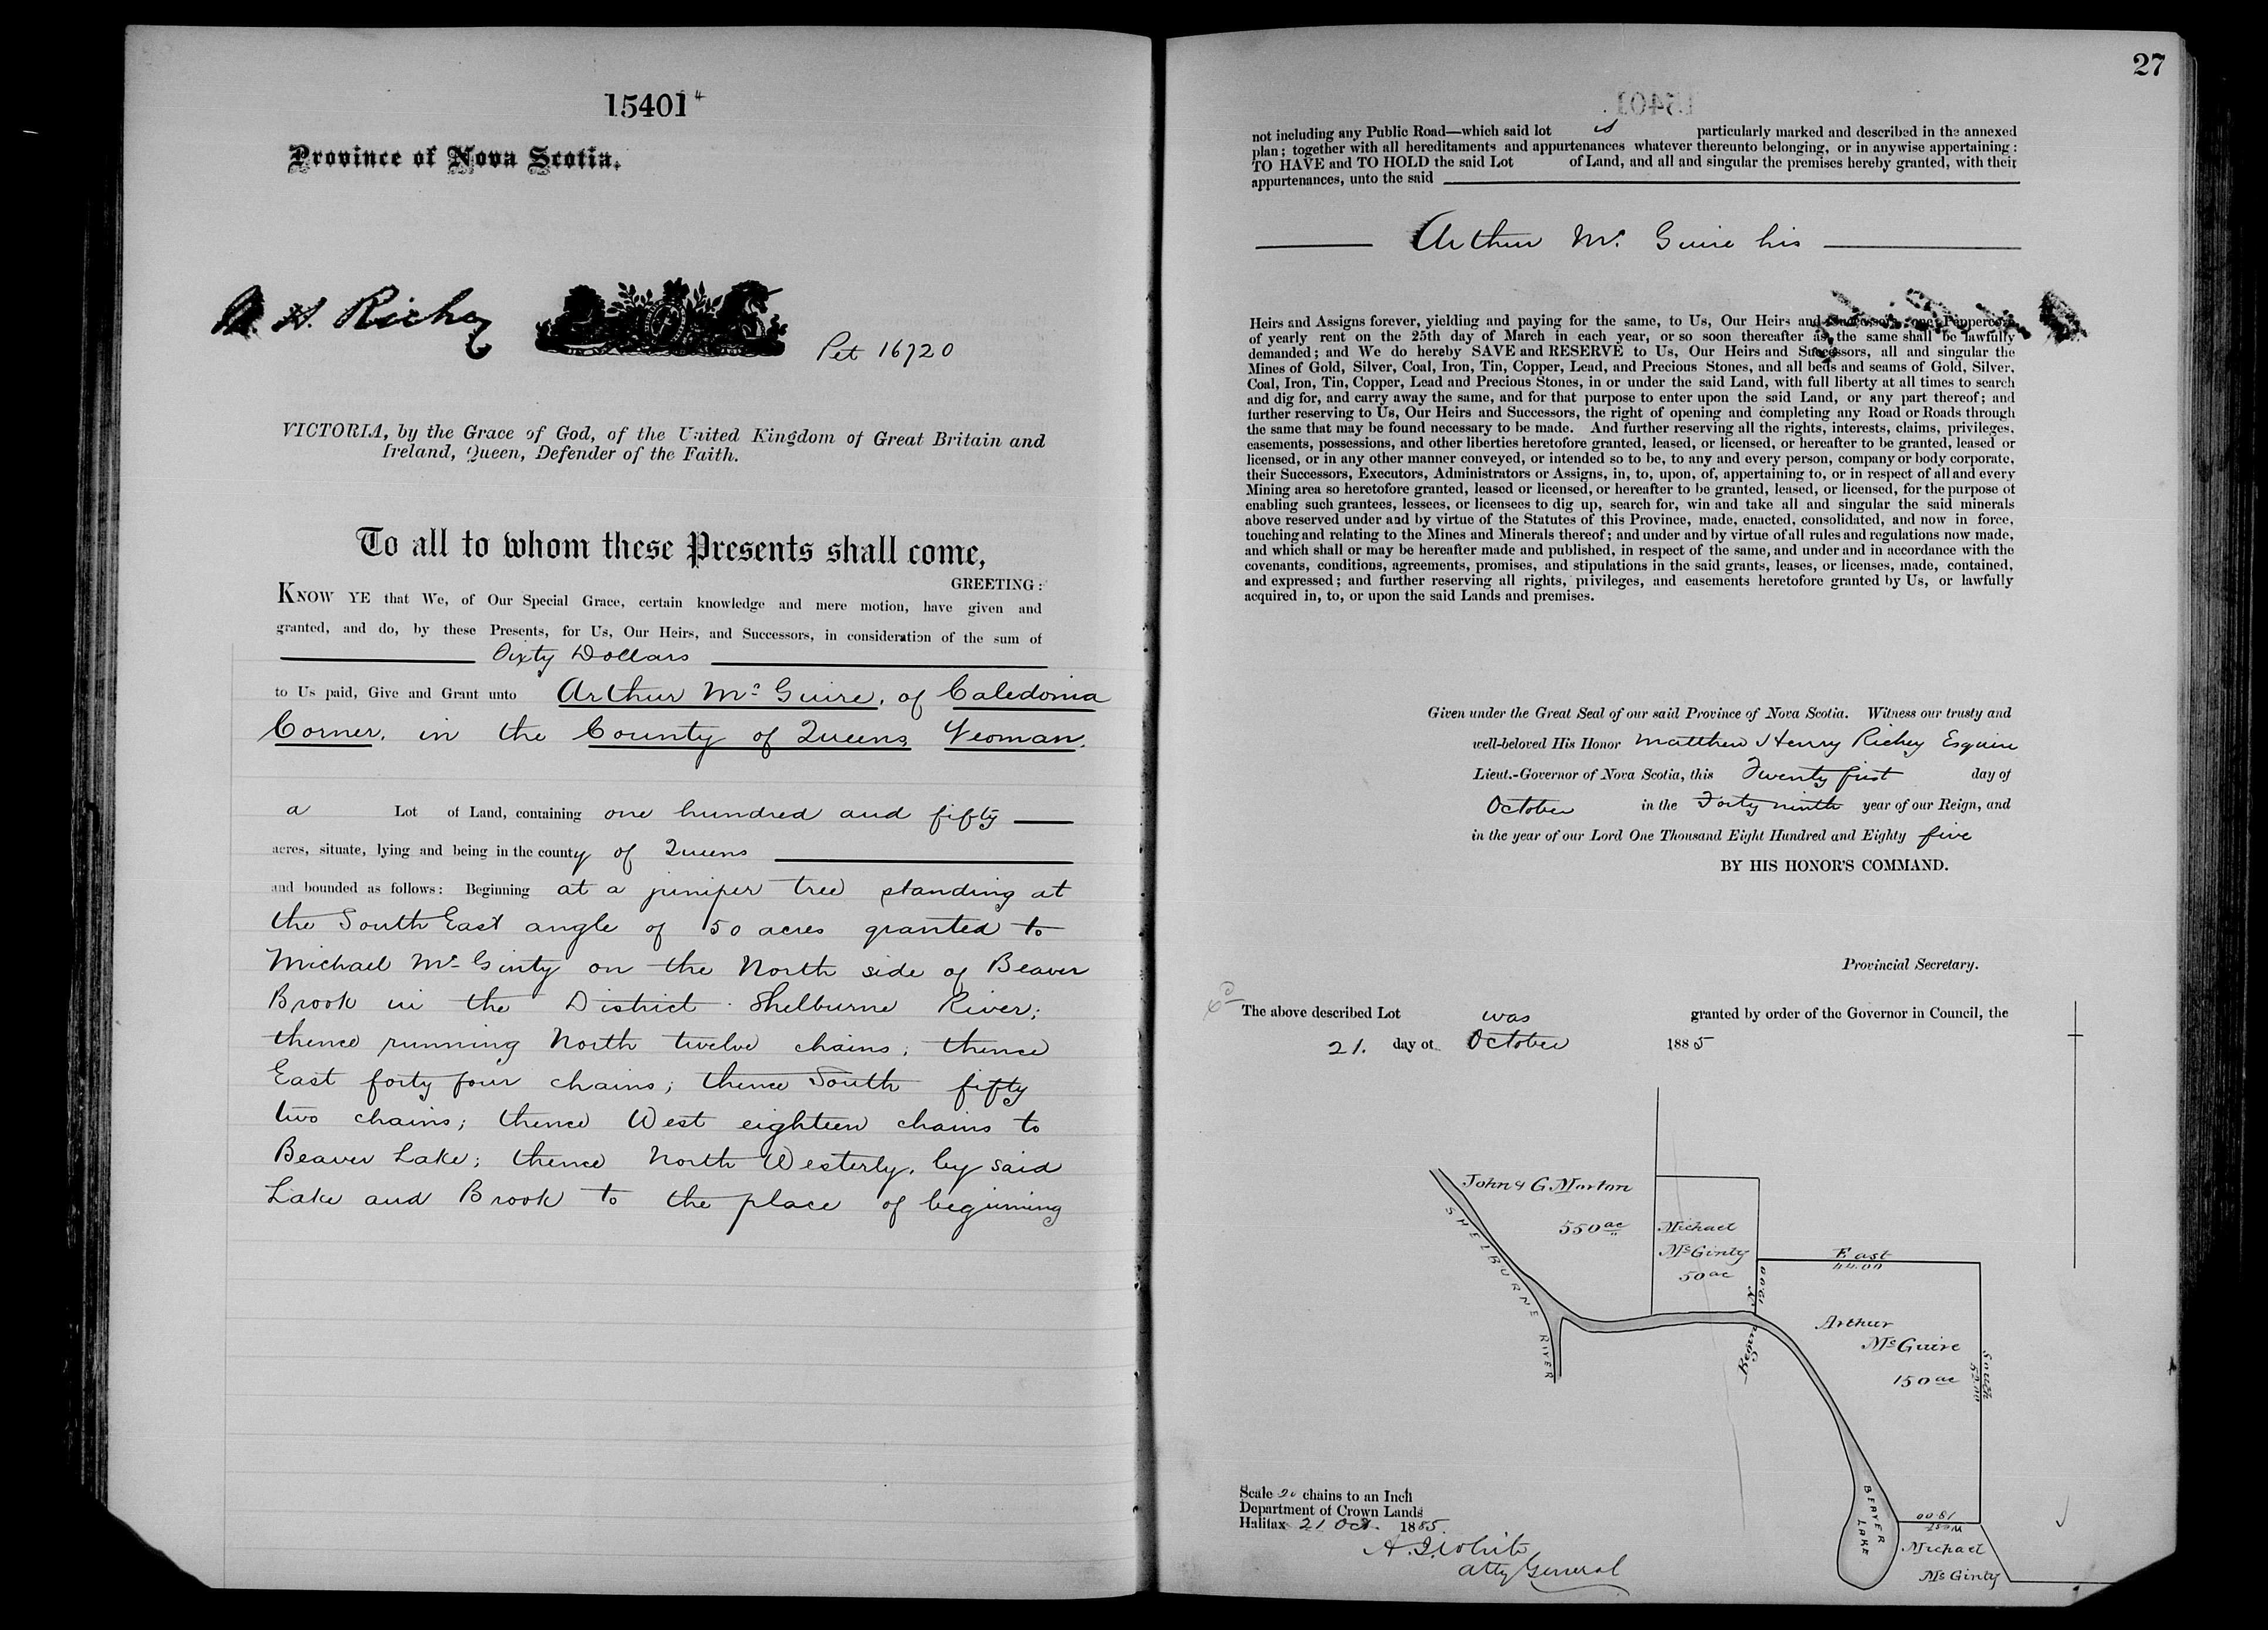 15401 4
Province of Nova Scotia.
M. H. Richey
Pet 16720
VICTORIA, by the Grace of God, of the United Kingdom of Great Britain and
Ireland, Queen, Defender of the Faith.
To all to whom these Presents shall come,
GREETING:
KNOW YE that We, of Our Special Grace, certain knowledge and mere motion, have given and
granted, and do, by these Presents, for Us, Our Heirs, and Successors, in consideration of the sum of
Sixty Dollars
to Us paid, Give and Grant unto Arthur McGuire, of Caledonia
Corner, in the County of Queens, Yeoman,
a Lot of Land, containing one hundred and fifty
acres, situate, lying and being in the county of Queens
and bounded as follows: Beginning at a juniper tree standing at
the South East angle of 50 acres granted to
Michael McGinty on the North side of Beaver
Brook in the District Shelburne River;
thence running North twelve chains; thence
East forty four chains; thence South fifty
two chains; thence West eighteen chains to
Beaver Lake; thence North Westerly, by said
Lake and Brook to the place of beginning
27
15401
not including any Public Road—which said lot is particularly marked and described in the annexed
plan; together with all hereditaments and appurtenances whatever thereunto belonging, or in anywise appertaining:
TO HAVE and TO HOLD the said Lot of Land, and all and singular the premises hereby granted, with their
appurtenances, unto the said
Arthur Mc Guire his
Heirs and Assigns forever, yielding and paying for the same, to Us, Our Heirs and Successors, one Peppercorn
of yearly rent on the 25th day of March in each year, or so soon thereafter as the same shall be lawfully
demanded; and We do hereby SAVE and RESERVE to Us, Our Heirs and Successors, all and singular the
Mines of Gold, Silver, Coal, Iron, Tin, Copper, Lead, and Precious Stones, and all beds and seams of Gold, Silver,
Coal, Iron, Tin, Copper, Lead and Precious Stones, in or under the said Land, with full liberty at all times to search
and dig for, and carry away the same, and for that purpose to enter upon the said Land, or any part thereof; and
further reserving to Us, Our Heirs and Successors, the right of opening and completing any Road or Roads through
the same that may be found necessary to be made. And further reserving all the rights, interests, claims, privileges,
easements, possessions, and other liberties heretofore granted, leased, or licensed, or hereafter to be granted, leased or
licensed, or in any other manner conveyed, or intended so to be, to any and every person, company or body corporate,
their Successors, Executors, Administrators or Assigns, in, to, upon, of, appertaining to, or in respect of all and every
Mining area so heretofore granted, leased or licensed, or hereafter to be granted, leased, or licensed, for the purpose of
enabling such grantees, lessees, or licensees to dig up, search for, win and take all and singular the said minerals
above reserved under and by virtue of the Statutes of this Province, made, enacted, consolidated, and now in force,
touching and relating to the Mines and Minerals thereof; and under and by virtue of all rules and regulations now made,
and which shall or may be hereafter made and published, in respect of the same, and under and in accordance with the
covenants, conditions, agreements, promises, and stipulations in the said grants, leases, or licenses, made, contained,
and expressed; and further reserving all rights, privileges, and easements heretofore granted by Us, or lawfully
acquired in, to, or upon the said Lands and premises.
Given under the Great Seal of our said Province of Nova Scotia. Witness our trusty and
well-beloved His Honor Matthew Henry Richey Esquire
Lieut.-Governor of Nova Scotia, this Twenty first day of
October in the Forty ninth year of our Reign, and
in the year of our Lord One Thousand Eight Hundred and Eighty five
BY HIS HONOR'S COMMAND.
Provincial Secretary.
The above described Lot was granted by order of the Governor in Council, the
21. day of October 1885
John & G Morton
550 ac
Michael
McGinty
50 ac
SHELBURNE RIVER
East
44.00
N. 12.00
Begng
Arthur
McGuire
150 ac
South
52.00
BEAVER LAKE
West
18.00
Michael
McGinty
Scale 20 chains to an Inch
Department of Crown Lands
Halifax 21 Oct. 1885.
A. J. White
Atty General